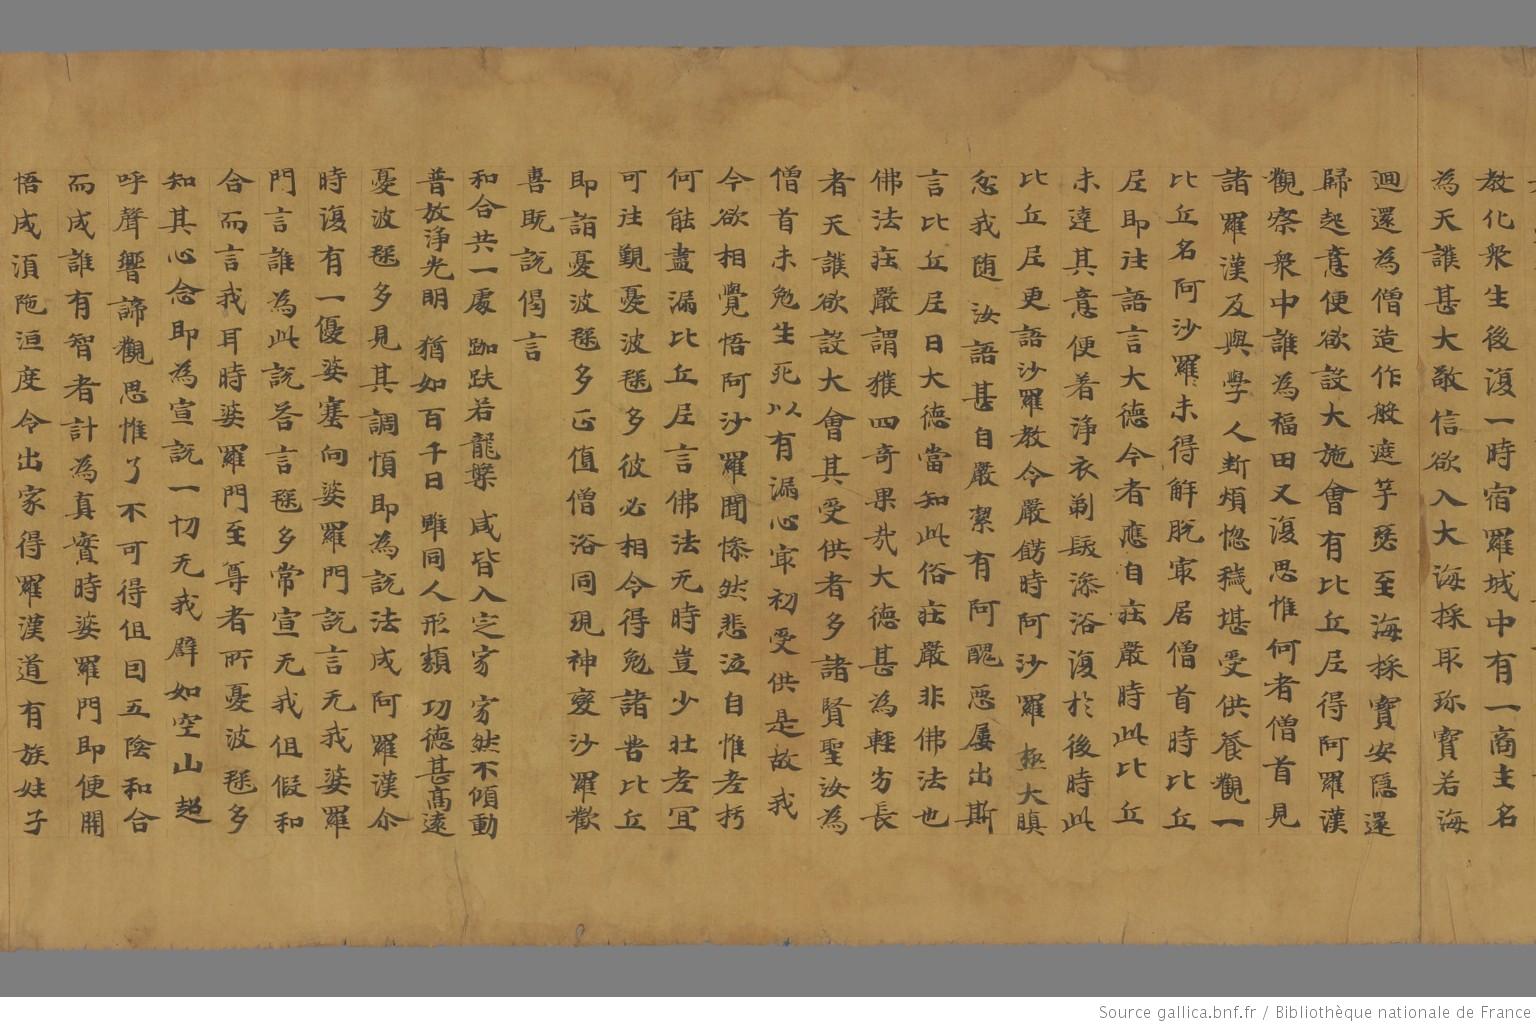 教化衆生後復一時宿羅城中有一商主名
為天護甚大敬信欲入大海採取珎寶若海
迴還為僧造作般遮于瑟至海採寶安隱還
歸起意便欲設大施會有比丘尼得阿羅漢
觀察衆中誰為福田又復思惟何者僧首見
諸羅漢及與學人断煩惚穢堪受供養觀一
比丘名阿沙羅未得解脫寂居僧首時比丘
尼即往語言大德今者應自莊嚴時此比丘
未達其意便著淨衣剃髮澡浴復於後時此
比丘尼更語沙羅教令嚴餝時阿沙羅極大瞋
忿我随汝語甚自嚴潔有何醜惡屢出斯
言比丘尼曰大德當知此俗莊嚴非佛法也
佛法莊嚴謂獲四奇果㢤大德甚為輕劣長
者天護欲設大會其受供者多諸賢聖汝為
僧首未勉生死以有漏心寂初受供是故我
今欲相覺悟阿沙羅聞慘然悲泣自惟老朽
何能盡漏比丘尼言佛法无時豈少壮老冝
可往覲憂波毱多彼必相令得勉諸咎比丘
即詣憂波毱多正值僧浴同現神變沙羅歡
喜既說偈言
和合共一處 跏趺若龍槃 咸皆入定寂 寂然不傾動
普放淨光明 猶如百千日 雖同人形類 功德甚髙遠
憂波毱多見其調慎即為說法成阿羅漢尒
時復有一優婆塞向婆羅門說言无我婆羅
門言誰為此說荅言毱多常宣无我但假和
合而言我耳時婆羅門至尊者所憂波毱多
知其心念即為宣說一切无我譬如空山超
呼聲響諦觀思惟了不可得但因五陰和合
而成誰有智者計為真實時婆羅門即便開
悟成湏陁洹度令出家得羅漢道有族姓子